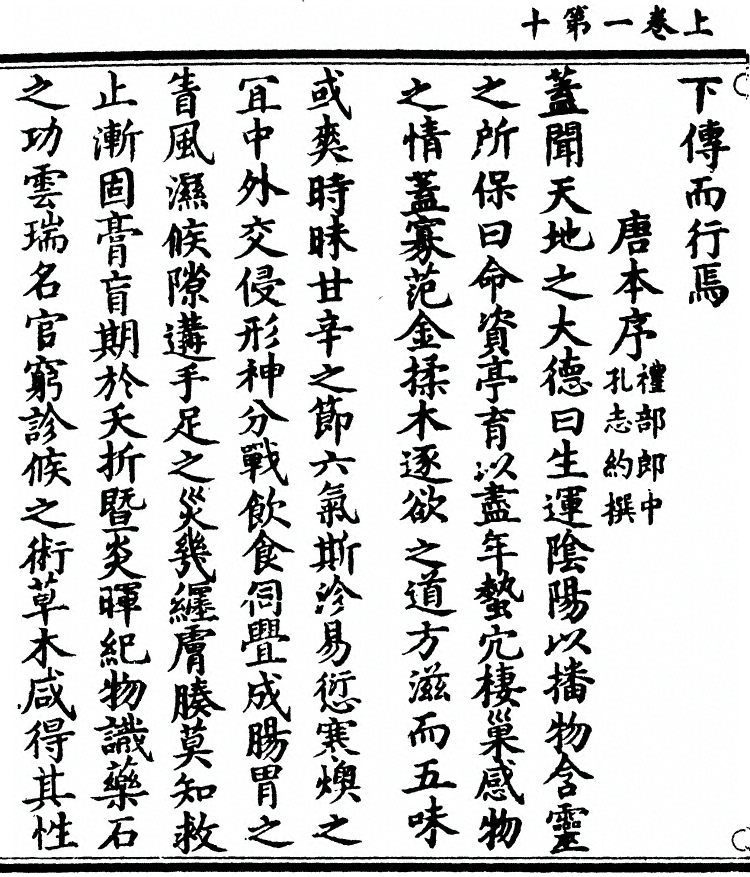 上卷一第十
下傳而行焉
唐本序
禮部郎中
孔志約撰
蓋聞天地之大德曰生運陰陽以播物含靈
之所保曰命資亭育以盡年蟄穴棲巢感物
之情蓋寡范金揉木逐欲之道方滋而五味
或爽時昧甘辛之節六氣斯沴易愆寒燠之
冝中外交侵形神分戰飲食伺舋成腸胃之
眚風濕候隙遘手足之災幾纏膚腠莫知救
止漸固膏肓期於夭折暨炎暉紀物識藥石
之功雲瑞名官窮診候之術草木咸得其性